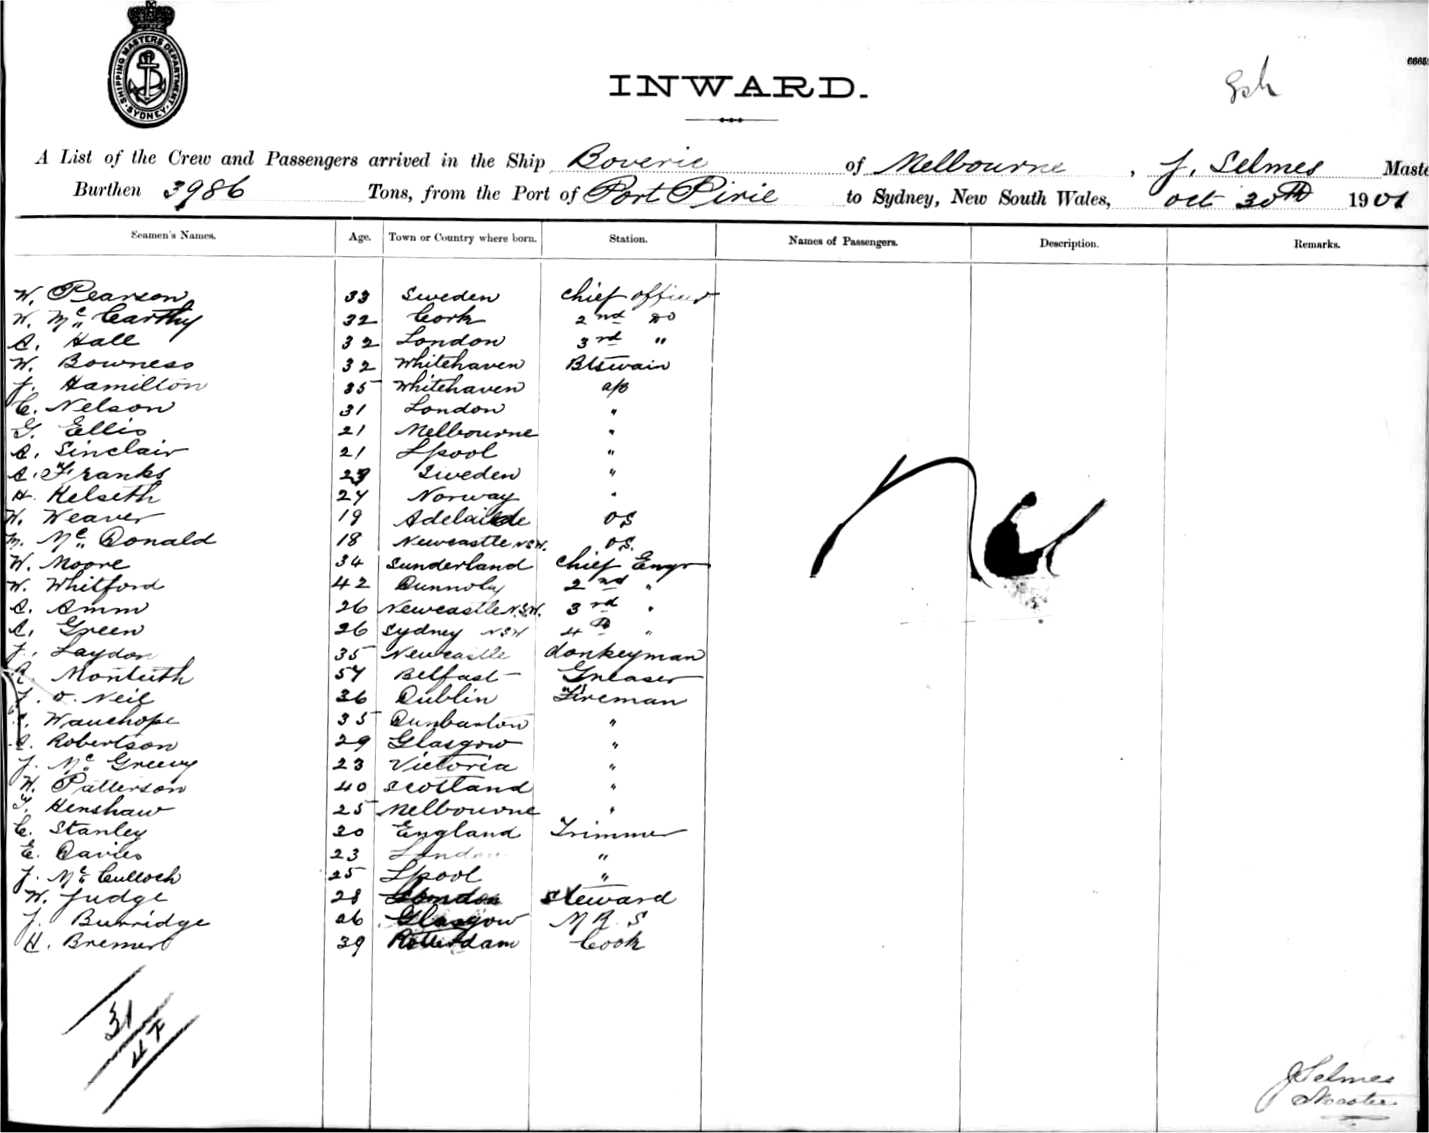 SHIPPING MASTERS DEPARTMENT SYDNEY
INWARD.
A List of the Crew and Passengers arrived in the Ship Boveric of Melbourne, J. Selmes Maste
Burthen 3986 Tons, from the Port of Port Pirie to Sydney, New South Wales, Oct 30th 1901
Seamen's Names. Age. Town or Country where born. Station. Names of Passengers. Description. Remarks.
W. Pearson 33 Sweden Chief officer
W. McCarthy 32 Cork 2nd Do
A. Hall 32 London 3rd "
W. Bowness 32 Whitehaven Btswain
J. Hamilton 35 Whitehaven a/b
C. Nelson 31 London "
G. Ellis 21 Melbourne "
A. Sinclair 21 Lpool "
A. Franks Sweden "
H. Kelseth 24 Norway "
W. Weaver 19 Adelaide OS
M. McDonald 18 Newcastle NSW. OS.
W. Moore 34 Sunderland Chief Engr
W. Whitford 42 Dunnoly 2nd "
A. Amm 26 Newcastle N.S.W. 3rd "
A. Green 26 Sydney NSW 4th "
J. Laydon 35 Newcastle donkeyman
R. Monteith 54 Belfast Greaser
J. O. Neil 36 Dublin Fireman
Wauchope 35 Dunbarton "
A. Robertson 29 Glasgow "
J. McGreevy 23 Victoria "
W. Patterson 40 Scotland "
T. Henshaw 25 Melbourne "
C. Stanley 20 England Trimmer
E. Davies 23 London "
J. McCulloch 25 Lpool "
W. Judge 28 London Steward
J. Burridge 26 Glasgow M R S
H. Bremert 39 Rotterdam Cook
31
47
J Selmes
Master